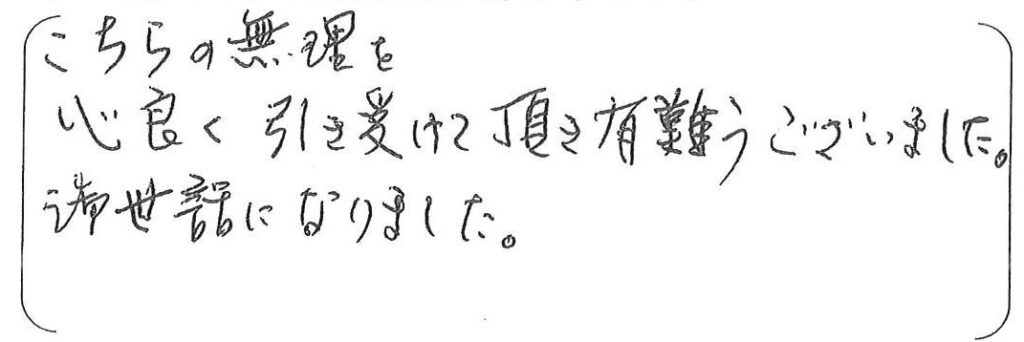 こちらの無理を
心良く引き受けて頂き有難うございました。
御世話になりました。